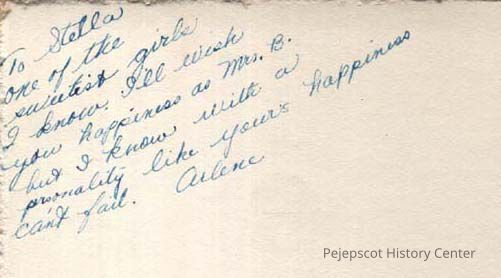 To Stella
one of the
sweetest girls
I know. I'll wish
you happiness as Mrs. B.
but I know with a
prsonality like your's happiness
can't fail. Arlene
Pejepscot History Center